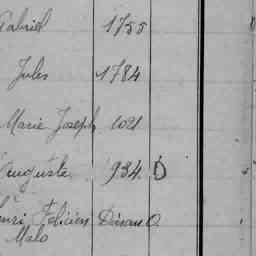 Gabriel 1755
Jules 1784
Marie Joseph 1021
Auguste 934. D
Henri Félicien Dinan O.
Malo